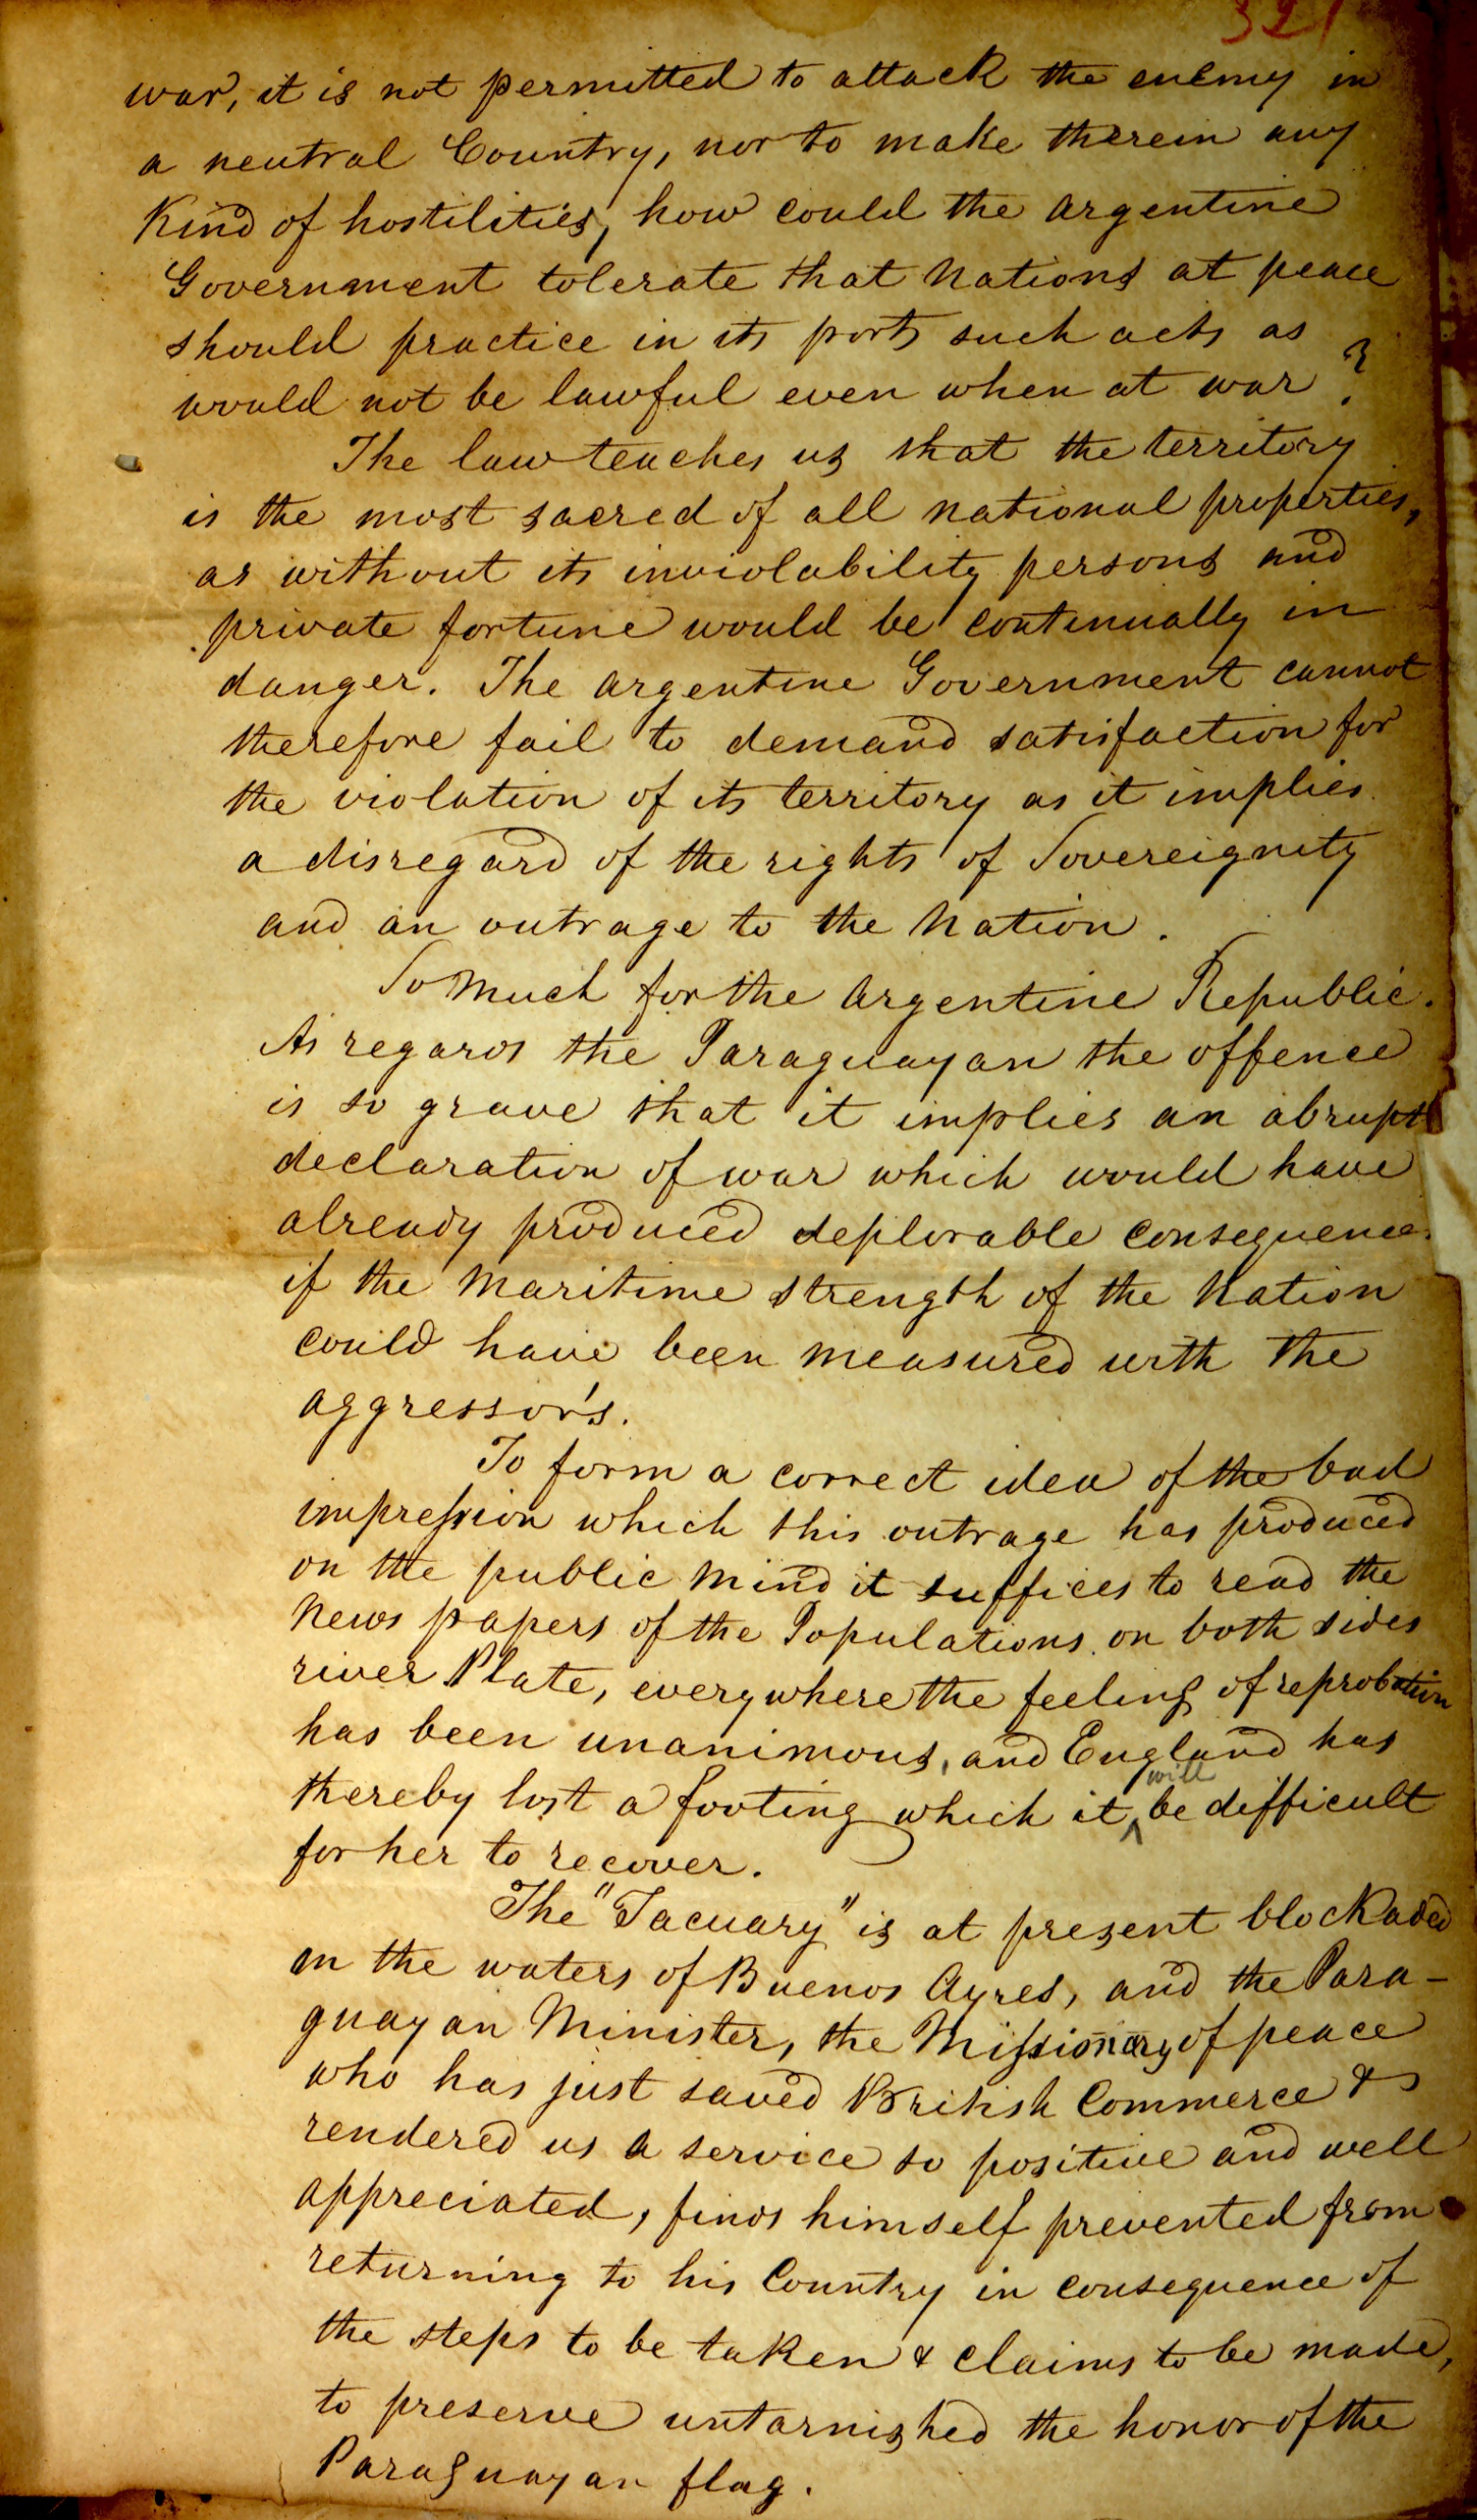 321
war, it is not permitted to attack the enemy in
a neutral Country, nor to make therein any
Kind of hostilities, how could the Argentine
Government tolerate that Nations at peace
should practice in its ports such acts as
would not be lawful even when at war?
The law teaches us that the territory
is the most sacred of all national properties,
as without its inviolability persons and
private fortune would be continually in
danger. The Argentine Government cannot
therefore fail to demand satisfaction for
the violation of its territory as it implies
a disregard of the rights of Sovereignity
and an outrage to the Nation.
So much for the Argentine Republic.
As regards the Paraguayan the offence
is so grave that it implies an abrupt
declaration of war which would have
already produced deplorable consequences
if the Maritime strength of the Nation
could have been measured with the
aggressor's.
To form a correct idea of the bad
impression which this outrage has produced
on the public mind it suffices to read the
News papers of the Populations on both sides
river Plate, everywhere the feeling of reprobation
has been unanimous, and England has
thereby lost a footing which it will be difficult
for her to recover.
The "Tacuary" is at present blockaded
in the waters of Buenos Ayres, and the Para-
guayan Minister, the Missionary of peace
who has just saved British Commerce &
rendered us a service so positive and well
appreciated, finds himself prevented from
returning to his Country in consequence of
the steps to be taken & claims to be made,
to preserve untarnished the honor of the
Paraguayan flag.